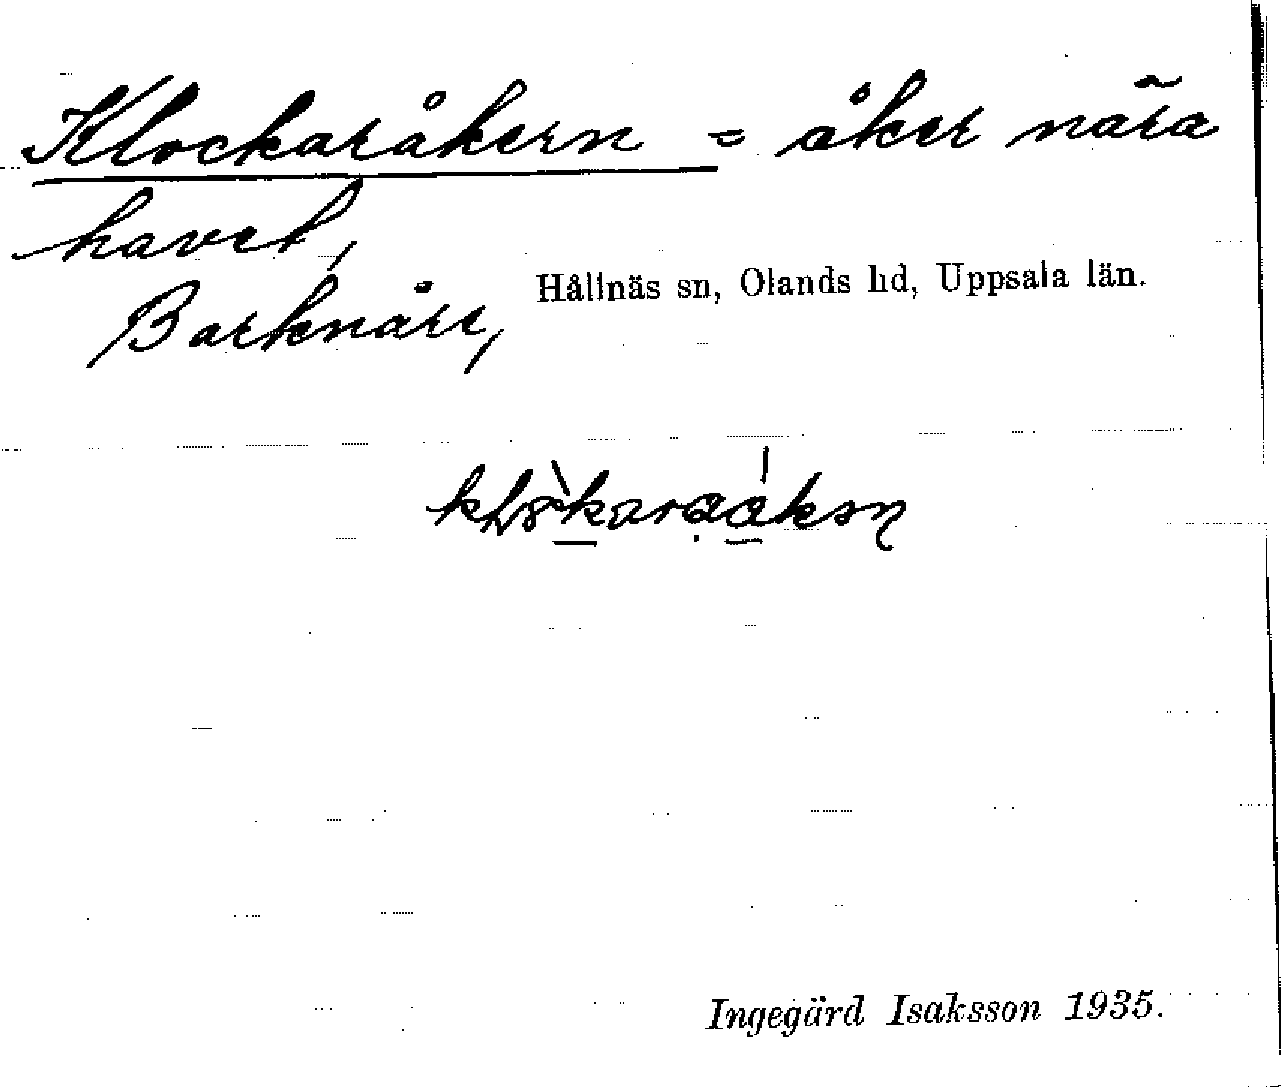 Klockaråkern = åker nära
havet,
Barknåre, Hållnäs sn, Olands hd, Uppsala län.
Ingegärd Isaksson 1935.